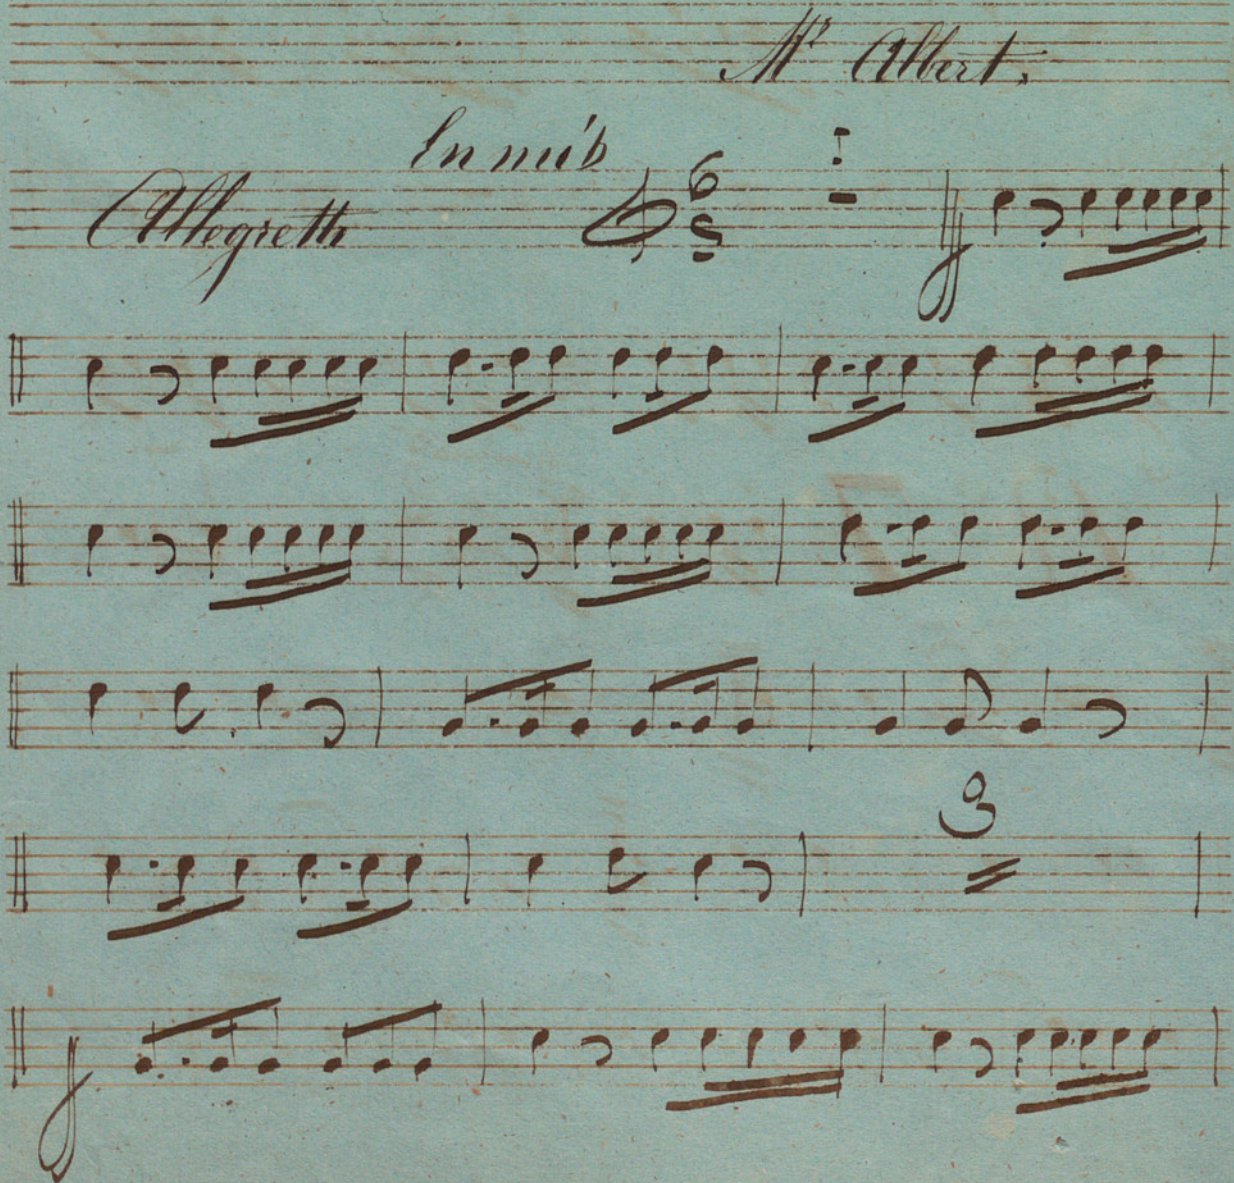 Mr Albert.
En mi b
Allegretto
6 8 1
3